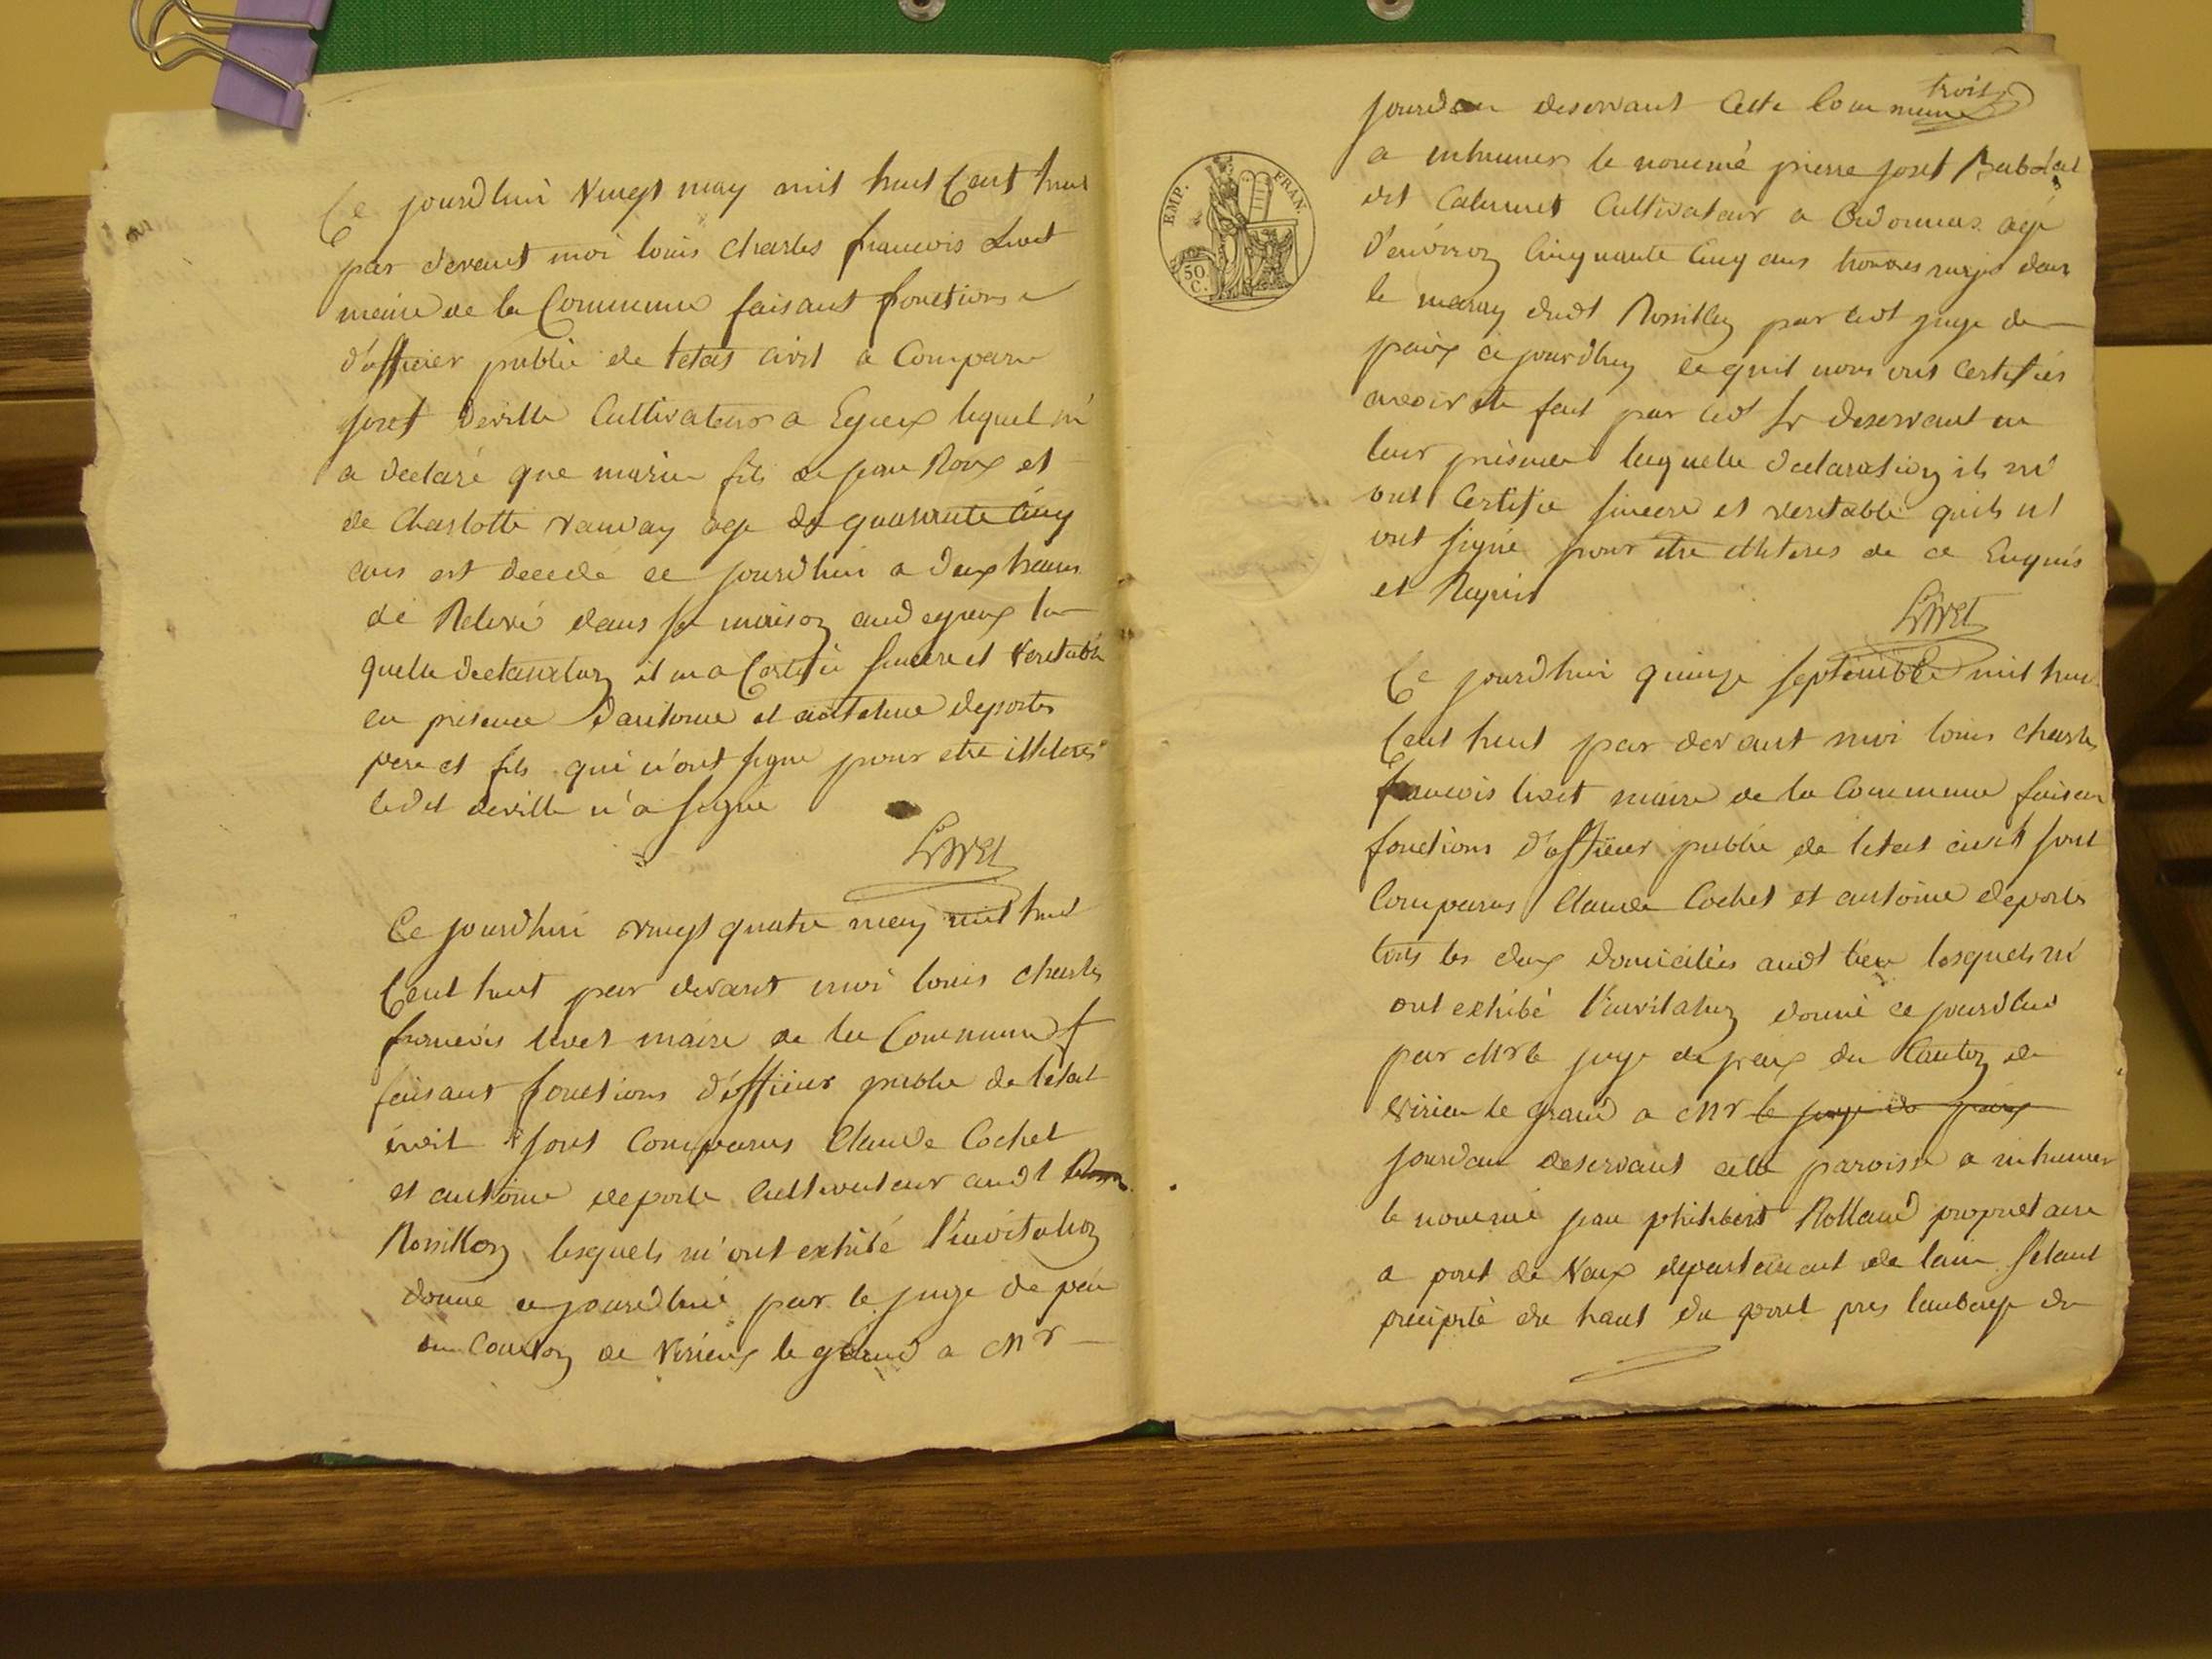 Ce jourdhui vingt may mil huit Cent huit
par devant moi louis charles francois Livet
maire de la Commune faisant fonctions
d'officier public de letat civil a Comparu
joset deville Cultivateur a Egieux lequel m'
a declaré que marin fils de jean Roux et
de Charlotte age de quarante Cinq
ans est decedé ce jourdhui a deux heures
de Relevé dans sa maison aud egieux la
quelle declaration il m a Certifié sincere et veritable
en presence Dantoine et deportes
pere et fils qui n'ont signé pour etre illiteres
ledit deville n'a signé
Livet
Ce jourdhui vingt quatre may mil huit
Cent huit par devant moi louis charles
francois livet maire de la Commune
faisant fonctions d'officier public de letat
civil sont Comparus Claude Cochet
et antoine deporte Cultivateur audt
Rossillon lesquels m'ont exhibé l'invitation
donné ce jourdhui par le juge de paix
du Canton de Virieux le grand a Mr
trois
jourdan deservant Cette Commune
a inhumer le nommé pierre joset
dit Calumet Cultivateur a Ordonnas agé
d'environ Cinquante Cinq ans dans
le maray dudt Rossillon par ledt juge de
paix ce jourdhuy ce quil nous ont Certifiés
avoir ete fait par ledt sr deservant en
leur presence laquelle declaration ils m'
ont Certifié sincere et veritable quils nt
ont signé pour etre illiteres de ce Enquis
et Requis
Livet
Ce jourdhui quinze septembre mil huit
Cent huit par devant moi louis charles
francois livet maire de la Commune faisan
fonctions d'officier public de letat civil sont
Comparus Claude Cochet et antoine deportes
tous les deux domiciliés audt lieu lesquels m'
ont exhibé l'invitation donné ce jourdhui
par Mr le juge de paix du Canton de
virieu le grand a Mr le juge de paix
jourdan deservant cette paroisse a inhumer
le nommé jean philibert Rolland proprietaire
a pont de Vaux departement de lain setant
precipité de haut du pont pres lauberge du